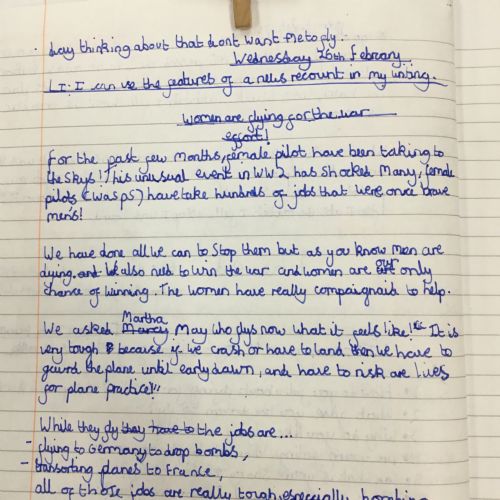 way thinking about that dont want me to ply.
Wednesday 26th February
LI: I can use the features of a news recount in my writing.
Women are flying for the war
effort!
For the past few months, female pilot have been taking to
the skys! This unusual event in WW2 has shocked many, female
pilots (WasPS) have take hundreds of jobs that were once brave
men's!
We have done all we can to stop them but as you know men are
dying. and We also need to win the war and women are our only
chance of winning. The women have really compaignaid to help.
We asked Martha May who flys now what it feels like! "It is
very tough because if we crash or have to land then we have to
gaurd the plane until early dawn, and have to risk are lives
for plane practice!"
While they fly they have to the jobs are...
- flying to Germany to drop bombs,
- transorting planes to France,
all of those jobs are really tough especially bombing